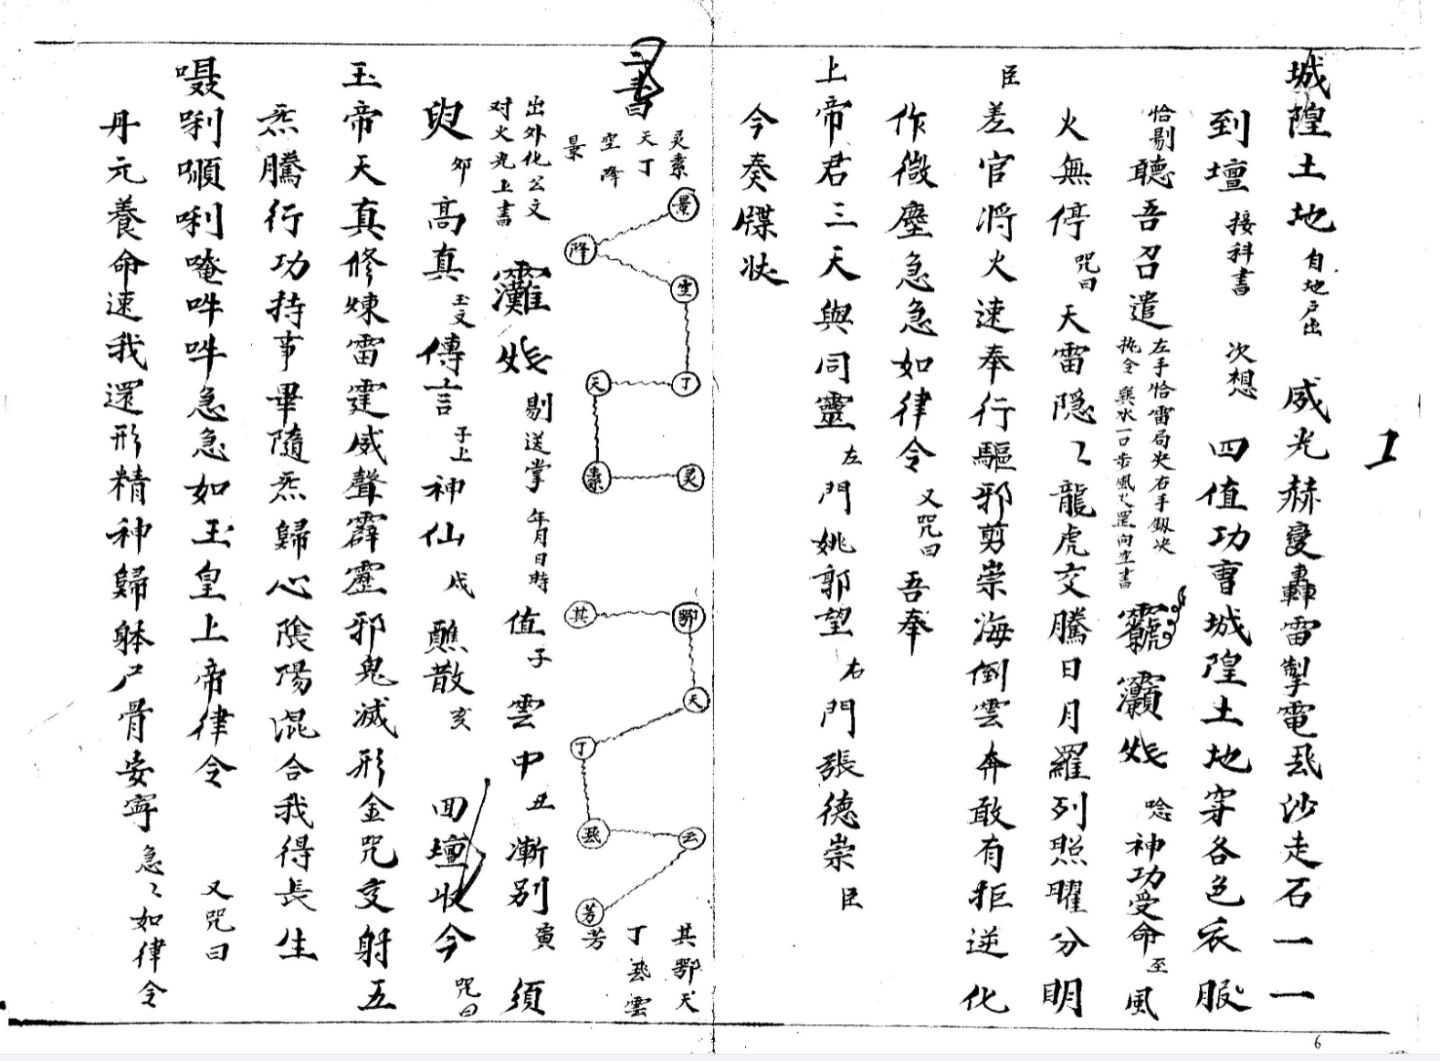 城隍土地 自地戶出 威光赫變轟雷掣電飛沙走石一一
到壇 接科書 次想 四值功曹城隍土地穿各色衣服
恰剔 聽吾召遣 左手恰雷局夬右手劔訣 執令 水一口步風火罡向空書 唸 神功受命至風
火無停 咒曰 天雷隱々龍虎交騰日月羅列照曜分明
臣差官将火速奉行驅邪剪崇海倒雲奔敢有拒逆化
作微塵急急如律令 又咒曰 吾奉
上帝君三天與同靈 左門姚郭望 右門張德崇 臣
今奏牒状
書
灵素
天丁
空降
景
景
降
空
丁
天
素
灵
鄂
其
天
丁
飛
云
芳
其鄂天
丁飛雲
芳
出外化公文
对火光上書
剔 送掌 年月日時 值 子 雲中 丑 漸别 寅 須
臾 卯 高真 玉文 傳言 子上 神仙 戍 醮散 亥 回壇收令 咒曰
玉帝天真修煉雷霆威聲霹靂邪鬼滅形金咒交射五
炁騰行功持事畢隨炁歸心陰陽混合我得長生
囁唎嚬唎唵吽吽急急如玉皇上帝律令 又咒曰
丹元養命速我還形精神歸躰尸骨安寧 急々如律令
6